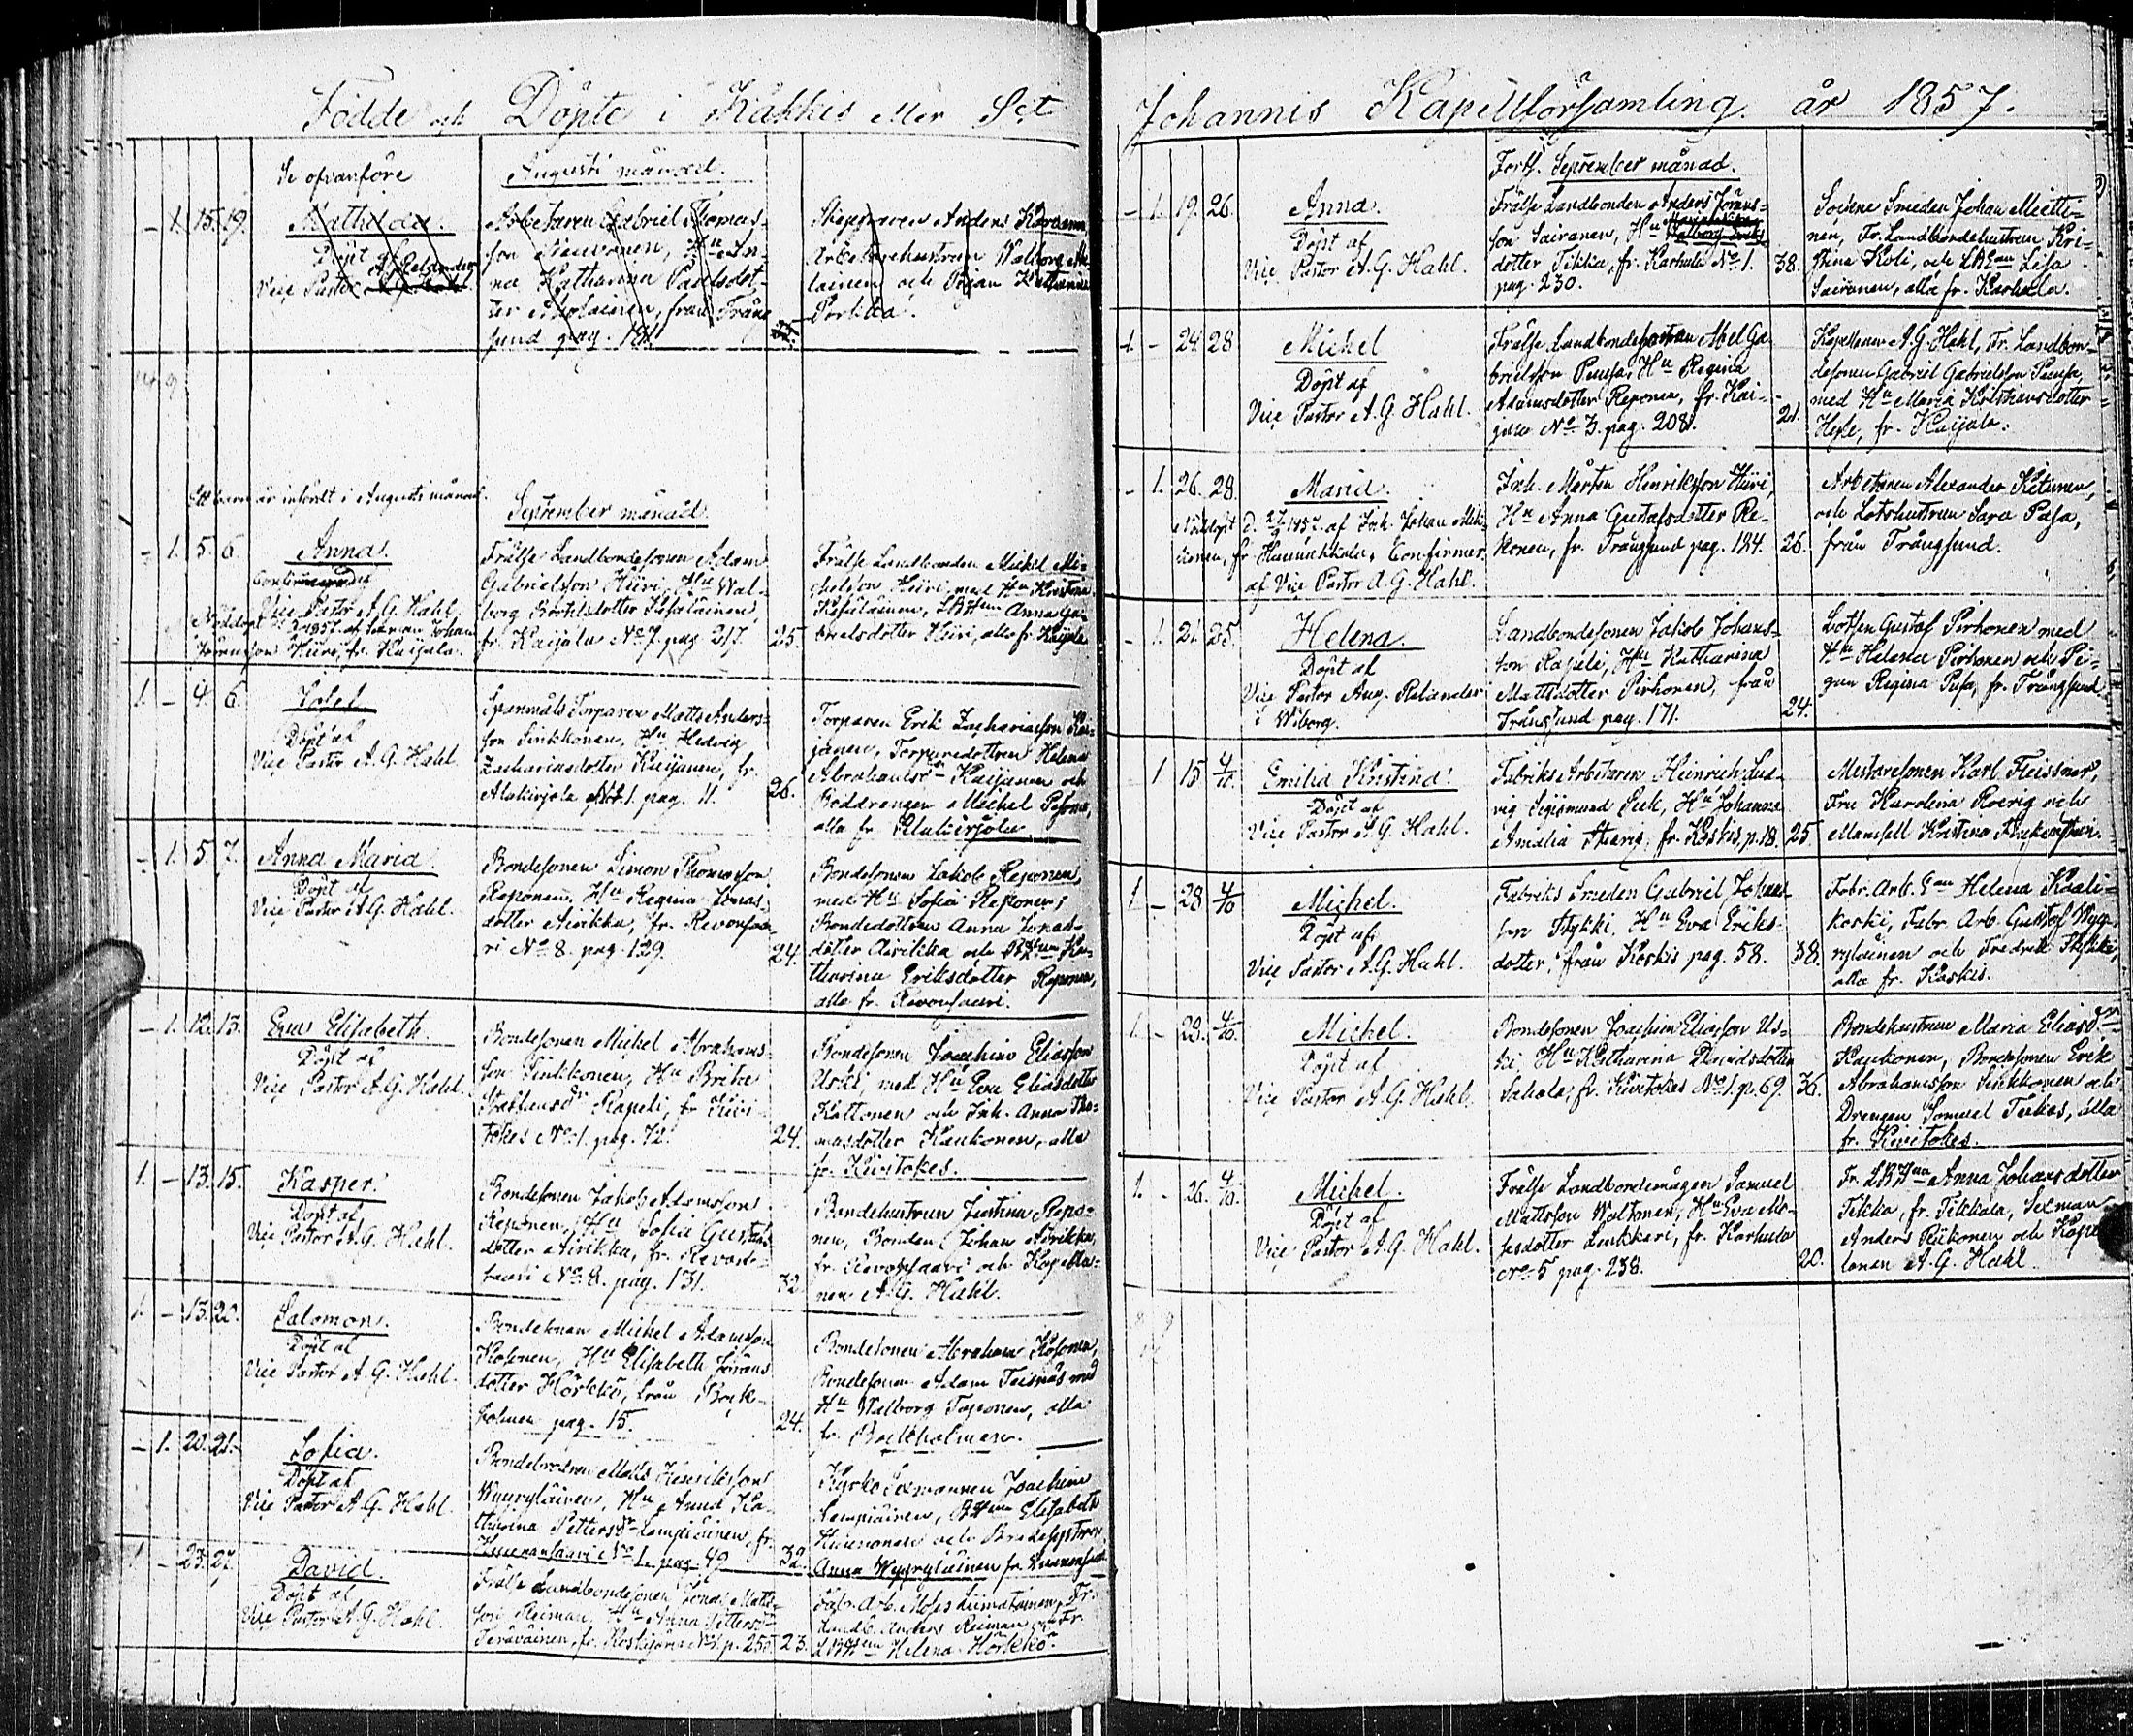 Födde och Döpte i Kakkis eller S:ct
Se ofvanföre
Augusti månad.
- 1. 15. 19. Mathilda.
Döpt af
Vice Pastor
A. Relander
Arbetaren Gabriel Thomas-
son Neuvonen, Hu An-
na Katharina Paulsdot-
ter, från Trång-
sund pag. 181.
Skepparen Anders
Arbetarehustrun Walborg
lainen och Pigan Katharina
Ett barn är infördt i Augusti månad.
September månad.
- 1. 5. 6. Anna.
Confirmerad af
Vice Pastor A. G. Hahl
Nöddöpt 1857 af Johan
Hiiri, fr. Kaijala.
Frälse Landbondesonen Adam
Gabrielsson Hiiri, Hu Wal-
borg
fr. Kaijala No 7. pag. 217. 25.
Frälse Landbonden Michel Mi-
chelsson Hiiri, med Hu Kristina
Anna Ga-
brielsdotter Hiiri, alla fr. Kaijala
1. - 4. 6.
Döpt af
Vice Pastor A. G. Hahl
Torparen Matts Anders-
son Sinkkonen, Hu Hedvig
Zachariasdotter Kaijanen, fr.
No 1. pag. 11. 26.
Torparen Erik Zachariasson Kai-
janen, Torparedottren Helena
Abrahamsdr Kaijanen och
Michel
alla fr.
- 1. 5. 7. Anna Maria.
Döpt af
Vice Pastor A. G. Hahl.
Bondesonen Simon Thomasson
Reponen, Hu Regina Jonas-
dotter Airikka, fr. Revonsaa-
ri No 8. pag. 129. 24.
Bondesonen Jakob Reponen,
med Hu Sofia Reponen,
Bondedottren Anna Jonas-
dotter Airikka och Ka-
tharina Eriksdotter Reponen,
alla fr. Revonsaari.
- 1. 12. 13. Eva Elisabeth.
Döpt af
Vice Pastor A. G. Hahl.
Bondesonen Michel Abrahams-
son Sinkkonen, Hu Brita
Staffansdr Rapeli, fr. Kivi-
tokes No 1. pag. 72. 24.
Bondesonen Joachim Eliasson
Uski, med Hu Eva Eliasdotter
Kattonen och Inh. Anna Tho-
masdotter Kaukonen, alla
fr. Kivitokes.
1. - 13. 15. Kasper.
Döpt af
Vice Pastor A. G. Hahl.
Bondesonen Jakob Adamsson
Reponen, Hu Sofia Gustafs-
dotter Airikka, fr. Revon-
saari No 8. pag. 131. 32
Bondehustrun Justina Repo-
nen, Bonden Johan Airikka,
fr. Revonsaari och Kapella-
nen A. G. Hahl.
1. - 13. 20. Salomon.
Döpt af
Vice Pastor A. G. Hahl.
Bondesonen Michel Adamsson
Kosonen, Hu Elisabeth Jörans-
dotter Hörkkö, från Bock-
holmen pag. 15. 24.
Bondesonen Abraham Kosonen,
Bondesonen Adam med
Hu Walborg Toponen, alla
fr. Bockholmen.
- 1. 20. 21. Sofia.
Döpt af
Vice Pastor A. G. Hahl.
Matts Henriksson
Wyyryläinen, Hu Anna Ka-
tharina Pettersdr Lempiäinen, fr.
No 1. pag. 49 32.
Kyrko Sexmannen Joachim
Lempiäinen, Elisabeth
och
Anna Wyyryläinen fr.
1 - 23. 27. David.
Döpt af
Vice Pastor A. G. Hahl.
Frälse Landbondesonen Jonas Matts-
son Reiman, Hu Anna Pettersdr
Teräväinen, fr. No 1. p. 250 23.
Fabr. Arb. Moses Liimatainen, Fr.
Landb. Anders Reiman och Fr.
Helena Hörkkö.
Johannis Kapellförsamling. år 1857.
Forts. September månad.
- 1. 19. 26. Anna.
Döpt af
Vice Pastor A. G. Hahl.
Frälse Landbonden Anders Jörans-
son Sairanen, Hu
dotter Tikka, fr. Karhula No 1. 38.
pag. 230.
Sockne Smeden Johan Mietti-
nen, Fr. Landbondehustrun Kri-
stina Koli, och Lisa
Sairanen, alla fr. Karhula.
1. - 24. 28 Michel
Döpt af
Vice Pastor A. G. Hahl.
Frälse Landbondesonen Abel Ga-
brielsson Puusa, Hu Regina
Adamsdotter Reponen, fr. Kai-
No 3. pag. 208. 21.
Kapellanen A. G. Hahl, Fr. Landbon-
desonen Gabriel Gabrielsson Puusa,
med Hu Maria Kristiansdotter
fr. Kaijala.
- 1. 26. 28. Maria.
Nöddöpt d. 27/9 1857. af Inh. Johan
fr. Confirmer.
af Vice Pastor A. G. Hahl.
Inh. Mårten Henriksson Hiiri,
Hu Anna Gustafsdotter Re-
konen, fr. Trångsund pag. 184. 26.
Arbetaren Alexander Ketunen,
och Lotshustrun Sara Pusa,
från Trångsund.
- 1. 21. 25. Helena.
Döpt af
Vice Pastor Aug. Relander
i Wiborg.
Landbondesonen Jakob Johans-
son Rapeli, Hu Katharina
Mattsdotter Pirhonen, från
Trångsund pag. 171. 24.
Lotsen Gustaf Pirhonen med
Hu Helena Pirhonen och Pi-
gan Regina Pusa, fr. Trångsund.
- 1 15 4/10. Emilia Kristina.
Döpt af
Vice Pastor A. G. Hahl.
Fabriks Arbetaren Heinrich Lud-
vig Sigismund Hu Johanna
Amalia fr. Koskis, p. 18. 25.
Mästaresonen Karl Fleissner,
Fru Karolina Roerig och
Mamsell Kristina
1 - 28 4/10 Michel.
Döpt af
Vice Pastor A. G. Hahl.
Fabriks Smeden Gabriel Johans-
son Hu Eva Eriks-
dotter, från Koskis pag. 58. 38.
Fabr. Arb. Helena Kaali-
koski, Fabr. Arb. Gustaf Wyy-
ryläinen och Fredrik
alla fr. Koskis.
1. - 29. 4/10. Michel.
Döpt af
Vice Pastor A. G. Hahl.
Bondesonen Joachim Eliasson Us-
ki, Hu Katharina Davidsdotter
Sahala, fr. Kivitokes No 1. p. 69. 36.
Bondehustrun Maria Eliasdr
Kaukonen, Bondesonen Erik
Abrahamsson Sinkkonen och
Drengen Samuel alla
fr. Kivitokes.
1. - 26. 4/10. Michel.
Döpt af
Vice Pastor A. G. Hahl.
Frälse Landbondemågen Samuel
Mattsson Waltonen, Hu Eva Mo-
sesdotter Linkkeri, fr. Karhula
No 5 pag. 238. 20.
Fr. Anna Johansdotter
Tikka, fr. Tikkala, Sexman
Anders Riikonen och Kapel-
lanen A. G. Hahl.